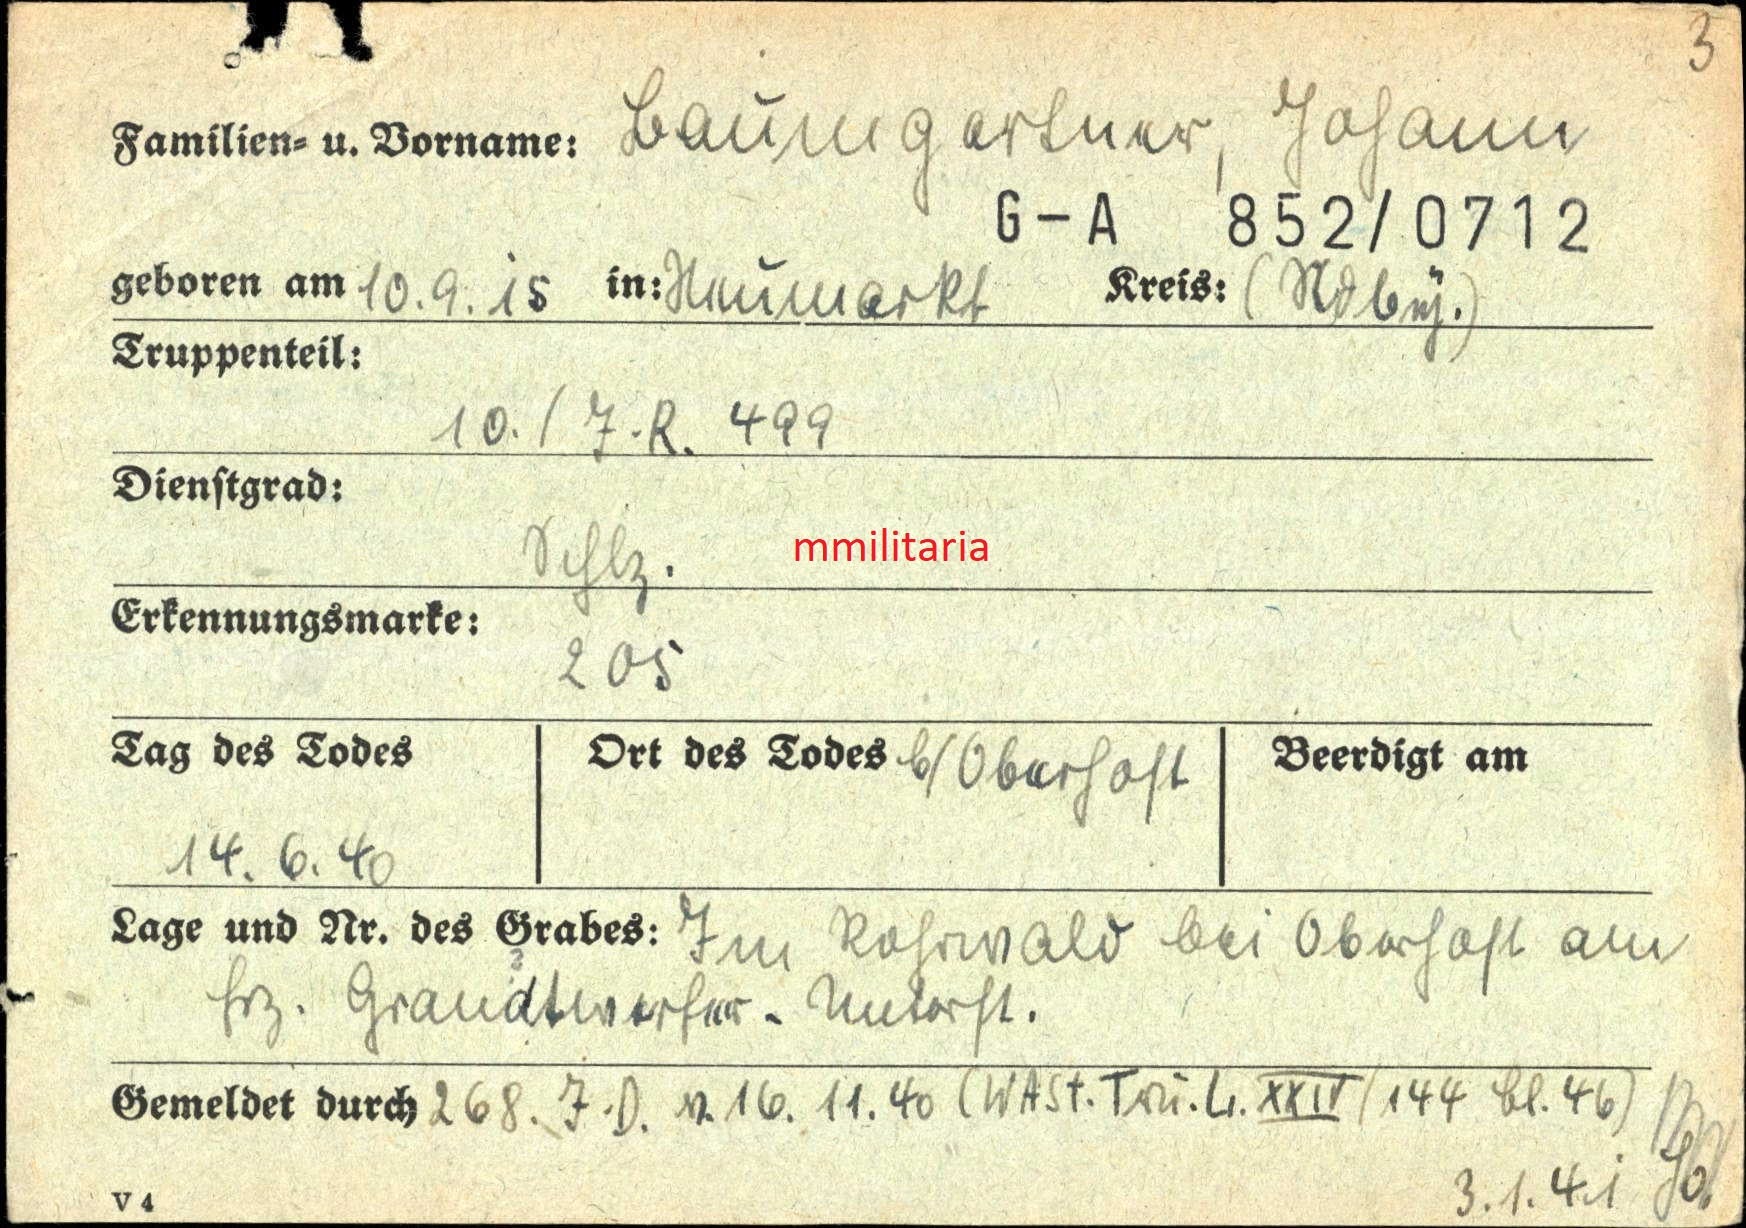 3
Familien- u. Vorname: Baumgartner, Johann
G-A 852/0712
geboren am 10.9.15 in: Neumarkt Kreis: (Ndbay.)
Truppenteil:
10./ J.R. 499
Dienstgrad:
Schtz.
mmilitaria
Erkennungsmarke:
205
Tag des Todes Ort des Todes b/Oberhost Beerdigt am
14.6.40
Lage und Nr. des Grabes: Im Rohrwald bei Oberhost am
frz. Granatwerfer-Unterst.
Gemeldet durch 268. J.D. v. 16.11.40 (WASt. XXIV/144 Bl. 46)
3.1.41
V 4